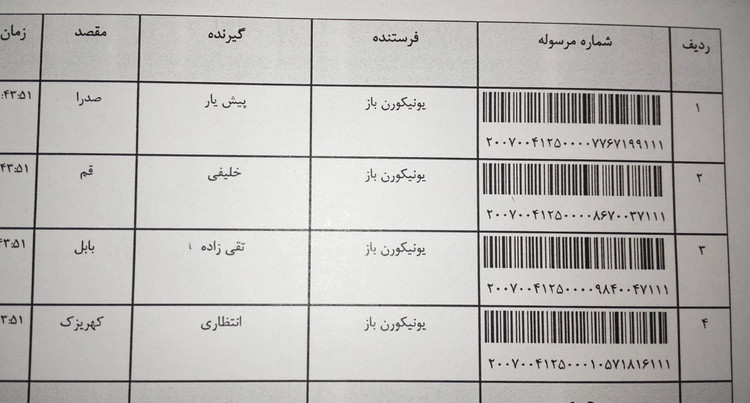 ردیف شماره مرسوله فرستنده گیرنده مقصد زمان
۱ یونیکورن باز پیش یار صدرا :۴۳:۵۱
۲۰۰۷۰۰۴۱۲۵۰۰۰۰۷۷۶۷۱۹۹۱۱۱
۲ یونیکورن باز خلیفی قم ۴۳:۵۱
۲۰۰۷۰۰۴۱۲۵۰۰۰۰۸۶۷۰۰۳۷۱۱۱
۳ یونیکورن باز تقی زاده بابل ۴۳:۵۱
۲۰۰۷۰۰۴۱۲۵۰۰۰۰۹۸۴۰۰۴۷۱۱۱
۴ یونیکورن باز انتظاری کهریزک ۳:۵۱
۲۰۰۷۰۰۴۱۲۵۰۰۰۱۰۵۷۱۸۱۶۱۱۱